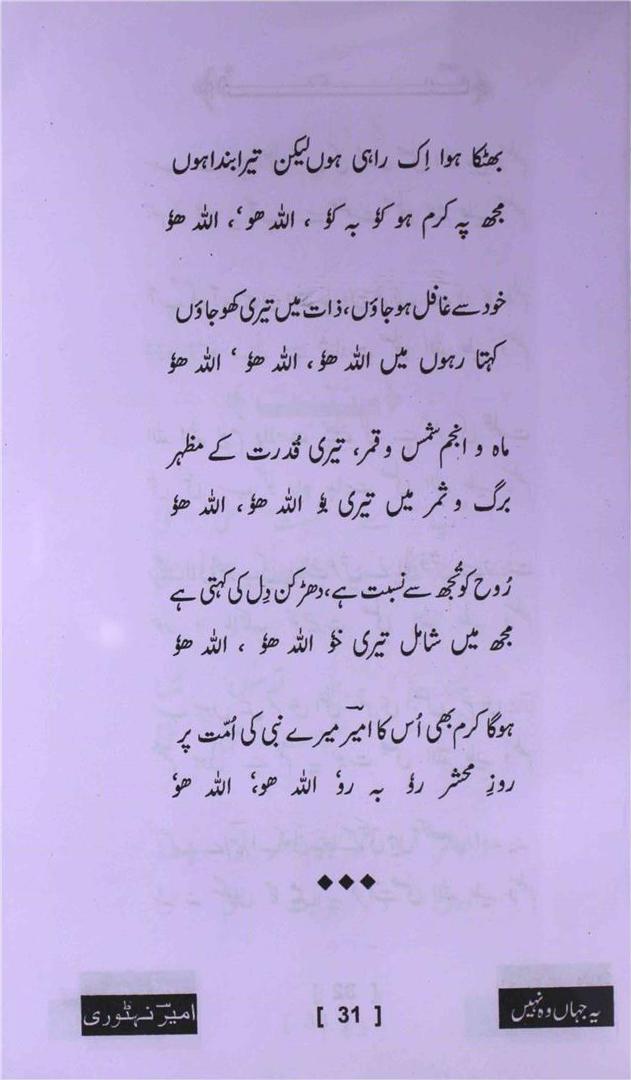 بھٹکا ہوا اِک راہی ہوں لیکن تیرا بندا ہوں
مجھ پہ کرم ہو کوٗ بہ کوٗ ، اللہ ھوٗ ، اللہ ھوٗ
خود سے غافل ہوجاؤں، ذات میں تیری کھوجاؤں
کہتا رہوں میں اللہ ھوٗ ، اللہ ھوٗ ، اللہ ھوٗ
ماہ و انجم شمس و قمر، تیری قُدرت کے مظہر
برگ و ثمر میں تیری بوٗ اللہ ھوٗ ، اللہ ھوٗ
رُوح کو تُجھ سے نسبت ہے، دھڑکن دِل کی کہتی ہے
مجھ میں شامل تیری خوٗ اللہ ھوٗ ، اللہ ھوٗ
ہوگا کرم بھی اُس کا امیرؔ میرے نبی کی اُمّت پر
روزِ محشر روٗ بہ روٗ اللہ ھوٗ ، اللہ ھوٗ
یہ جہاں وہ نہیں
[ 31 ]
امیرؔ نہٹوری